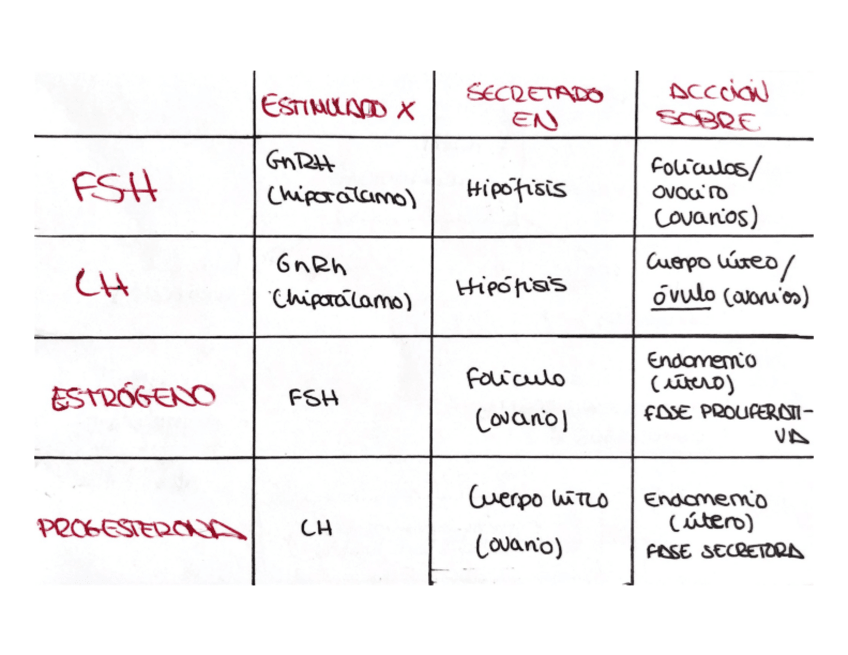 ESTIMULADO X
SECRETADO
EN
ACCCIÓN
SOBRE
FSH
GnRH
(hipotálamo)
Hipófisis
Folículos/
ovocito
(ovarios)
LH
GnRh
(hipotálamo)
Hipófisis
Cuerpo lúteo/
óvulo (ovarios)
ESTRÓGENO
FSH
Folículo
(ovario)
Endometrio
(útero)
FASE PROLIFERATI-
VA
PROGESTERONA
LH
Cuerpo lúteo
(ovario)
Endometrio
(útero)
FASE SECRETORA